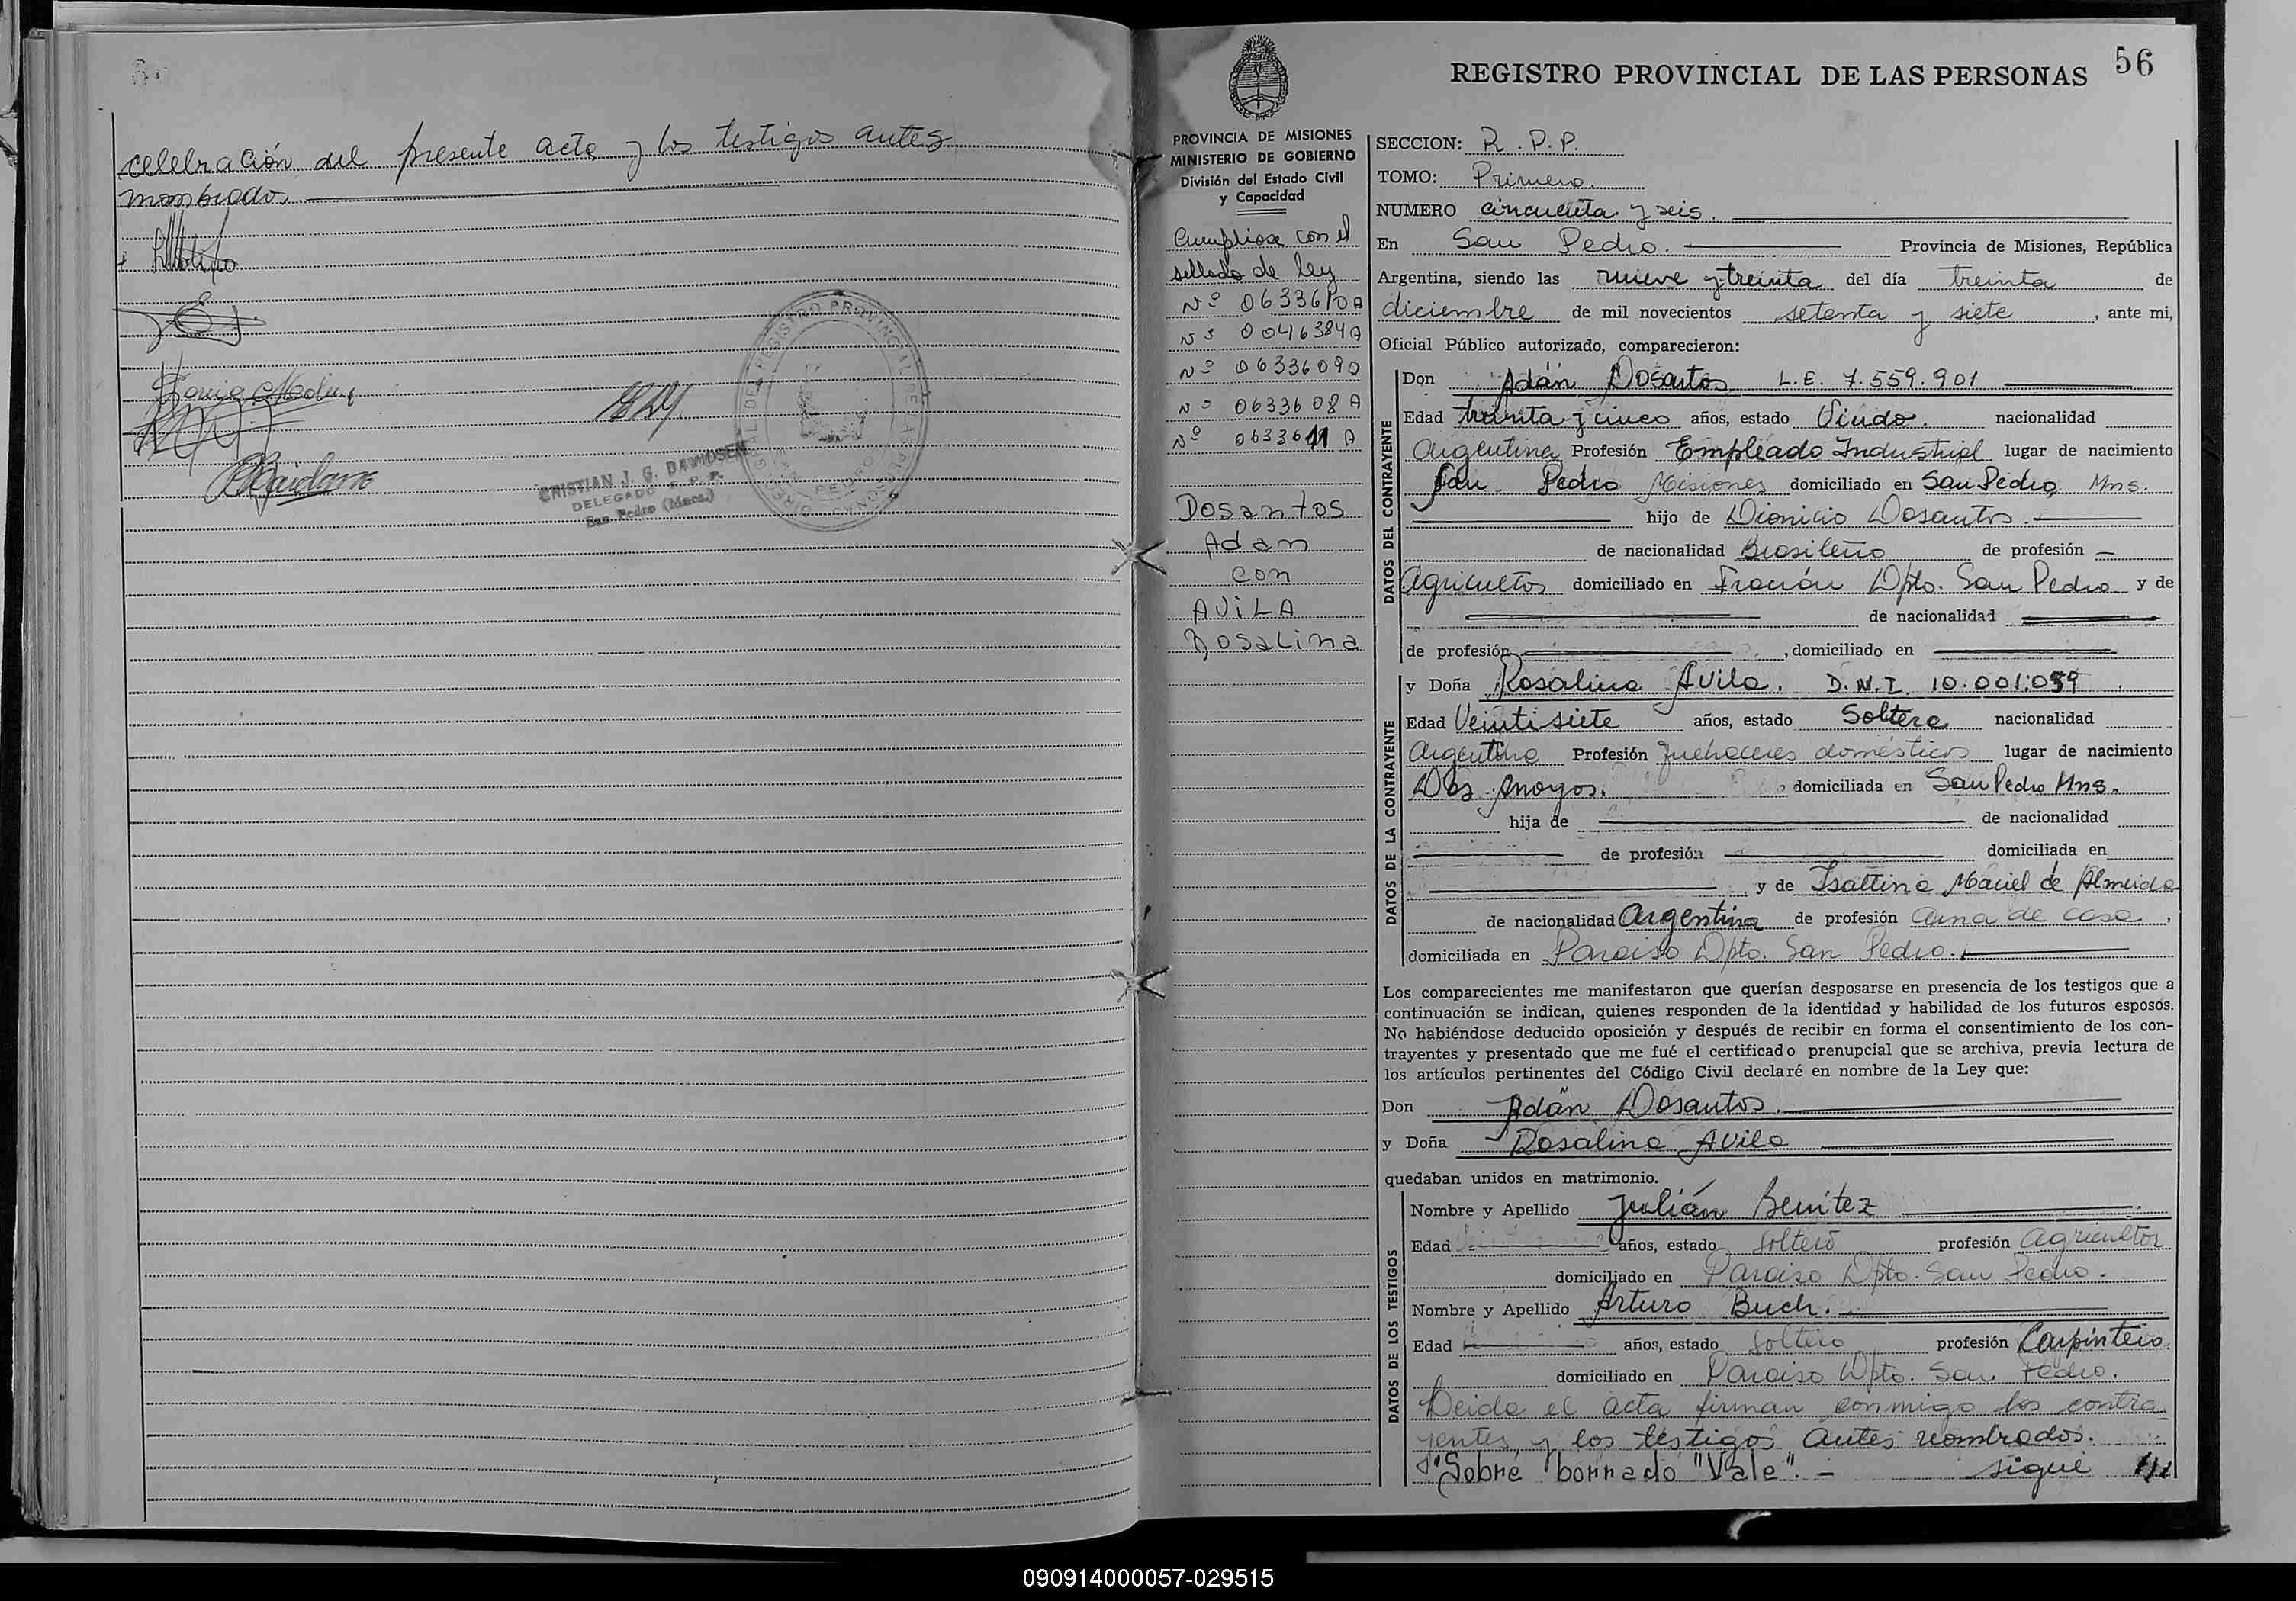 celebración del presente acta y los testigos antes
mombrados.
CRISTIAN J. G. DAWIDSEN
DELEGADO R. P. P.
San Pedro (Mnes.)
56
REGISTRO PROVINCIAL DE LAS PERSONAS
PROVINCIA DE MISIONES
MINISTERIO DE GOBIERNO
División del Estado Civil
y Capacidad
Cumpliose con el
sellado de ley
Nº 0633610A
Nº 0046384A
Nº 0633609
Nº 0633608A
Nº 0633611A
Dosantos
Adan
con
AViLA
Rosalina
SECCION: R.P.P.
TOMO: Primero.
NUMERO cincuenta y seis.
En San Pedro. Provincia de Misiones, República
Argentina, siendo las nueve y treinta del día treinta de
diciembre de mil novecientos setenta y siete, ante mi,
Oficial Público autorizado, comparecieron:
DATOS DEL CONTRAYENTE
Don Adán Dosantos L.E. 7.559.901
Edad treinta y cinco años, estado Viudo. nacionalidad
Argentina Profesión Empleado Industrial lugar de nacimiento
San Pedro Misiones domiciliado en San Pedro, Mns.
hijo de Dionicio Dosantos.
de nacionalidad Brasileño de profesión
agricultor domiciliado en Fracrán Dpto. San Pedro y de
de nacionalidad
de profesión, domiciliado en
DATOS DE LA CONTRAYENTE
y Doña Rosalina Avila. D.N.I. 10.001.059
Edad Veintisiete años, estado Soltera nacionalidad
Argentina Profesión quehaceres domésticos lugar de nacimiento
Dos Arroyos. domiciliada en San Pedro Mns.
hija de de nacionalidad
de profesión domiciliada en
y de Isaltina Maciel de Almeida
de nacionalidad Argentina de profesión ama de casa,
domiciliada en Paraiso Dpto. San Pedro.
Los comparecientes me manifestaron que querían desposarse en presencia de los testigos que a
continuación se indican, quienes responden de la identidad y habilidad de los futuros esposos.
No habiéndose deducido oposición y después de recibir en forma el consentimiento de los con-
trayentes y presentado que me fué el certificado prenupcial que se archiva, previa lectura de
los artículos pertinentes del Código Civil declaré en nombre de la Ley que:
Don Adán Dosantos.
y Doña Rosalina Avila
quedaban unidos en matrimonio.
DATOS DE LOS TESTIGOS
Nombre y Apellido Julián Benitez
Edad años, estado soltero profesión agricultor
domiciliado en Paraiso Dpto. San Pedro.
Nombre y Apellido Arturo Buch.
Edad años, estado soltero profesión Carpintero.
domiciliado en Paraiso Dpto. San Pedro.
Leida el acta firman conmigo los contra-
yentes, y los testigos antes nombrados.
"Sobre borrado "Vale". - sigue ///
090914000057-029515